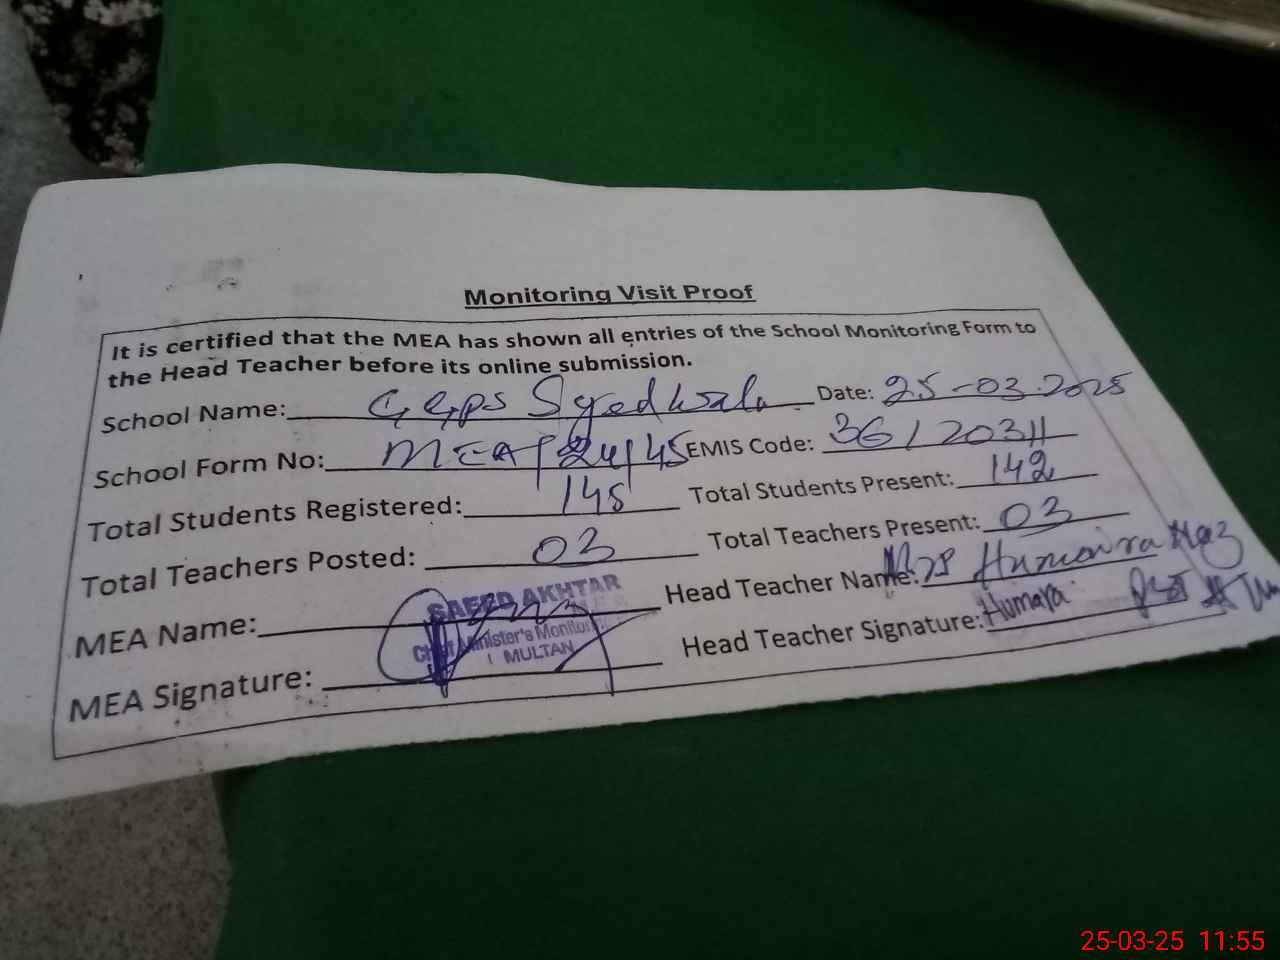 Monitoring Visit Proof
It is certified that the MEA has shown all entries of the School Monitoring Form to
the Head Teacher before its online submission.
School Name: GGPS Syedwala Date: 25-03-2025
School Form No: MEA/24/45 EMIS Code: 36120311
Total Students Registered: 145 Total Students Present: 142
Total Teachers Posted: 03 Total Teachers Present: 03
MEA Name: SAEED AKHTAR Head Teacher Name: Mrs Humaira Naz
Chief Minister's Monitoring
MULTAN
MEA Signature: Head Teacher Signature: Humara
25-03-25 11:55